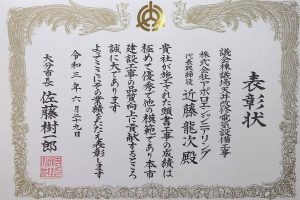 表彰状
議会棟議場天井改修電気設備工事
株式会社アポロエンジニアリング
代表取締役 近藤龍次殿
貴社が施工された頭書工事の成績は
極めて優秀で他の模範であり本市
建設工事の品質向上に貢献するところ
誠に大であります
よってここにその業績をたたえ表彰します
令和三年六月二十九日
大分市長 佐藤樹一郎